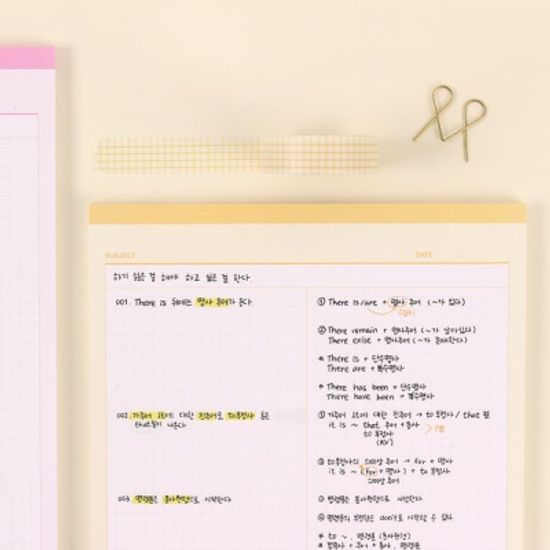 SUBJECT
DATE
하기 싫은 걸 해야 하고 싶은 걸 한다.
001. There is 뒤에는 명사 주어가 온다
① There is/are + 명사 주어 (~가 있다)
② There remain + 명사주어 (~가 남아있다)
There exist + 명사주어 (~가 존재한다)
* There is + 단수명사
There are + 복수명사
* There has been + 단수명사
There have been + 복수명사
002. 가주어 it에 대한 진주어로 to부정사 혹은
that절이 나온다
① 가주어 it에 대한 진주어 → to 부정사 / that 절
it is ~ that 주어 + 동사
to 부정사
② to부정사의 의미상 주어 → for + 명사
it is ~ (for + 명사) + to 부정사
의미상 주어
003. 명령문은 동사원형으로 시작한다
① 명령문은 동사원형으로 시작한다
② 명령문의 부정문은 don't로 시작할 수 있다
* to ~, 명령문 (동사원형)